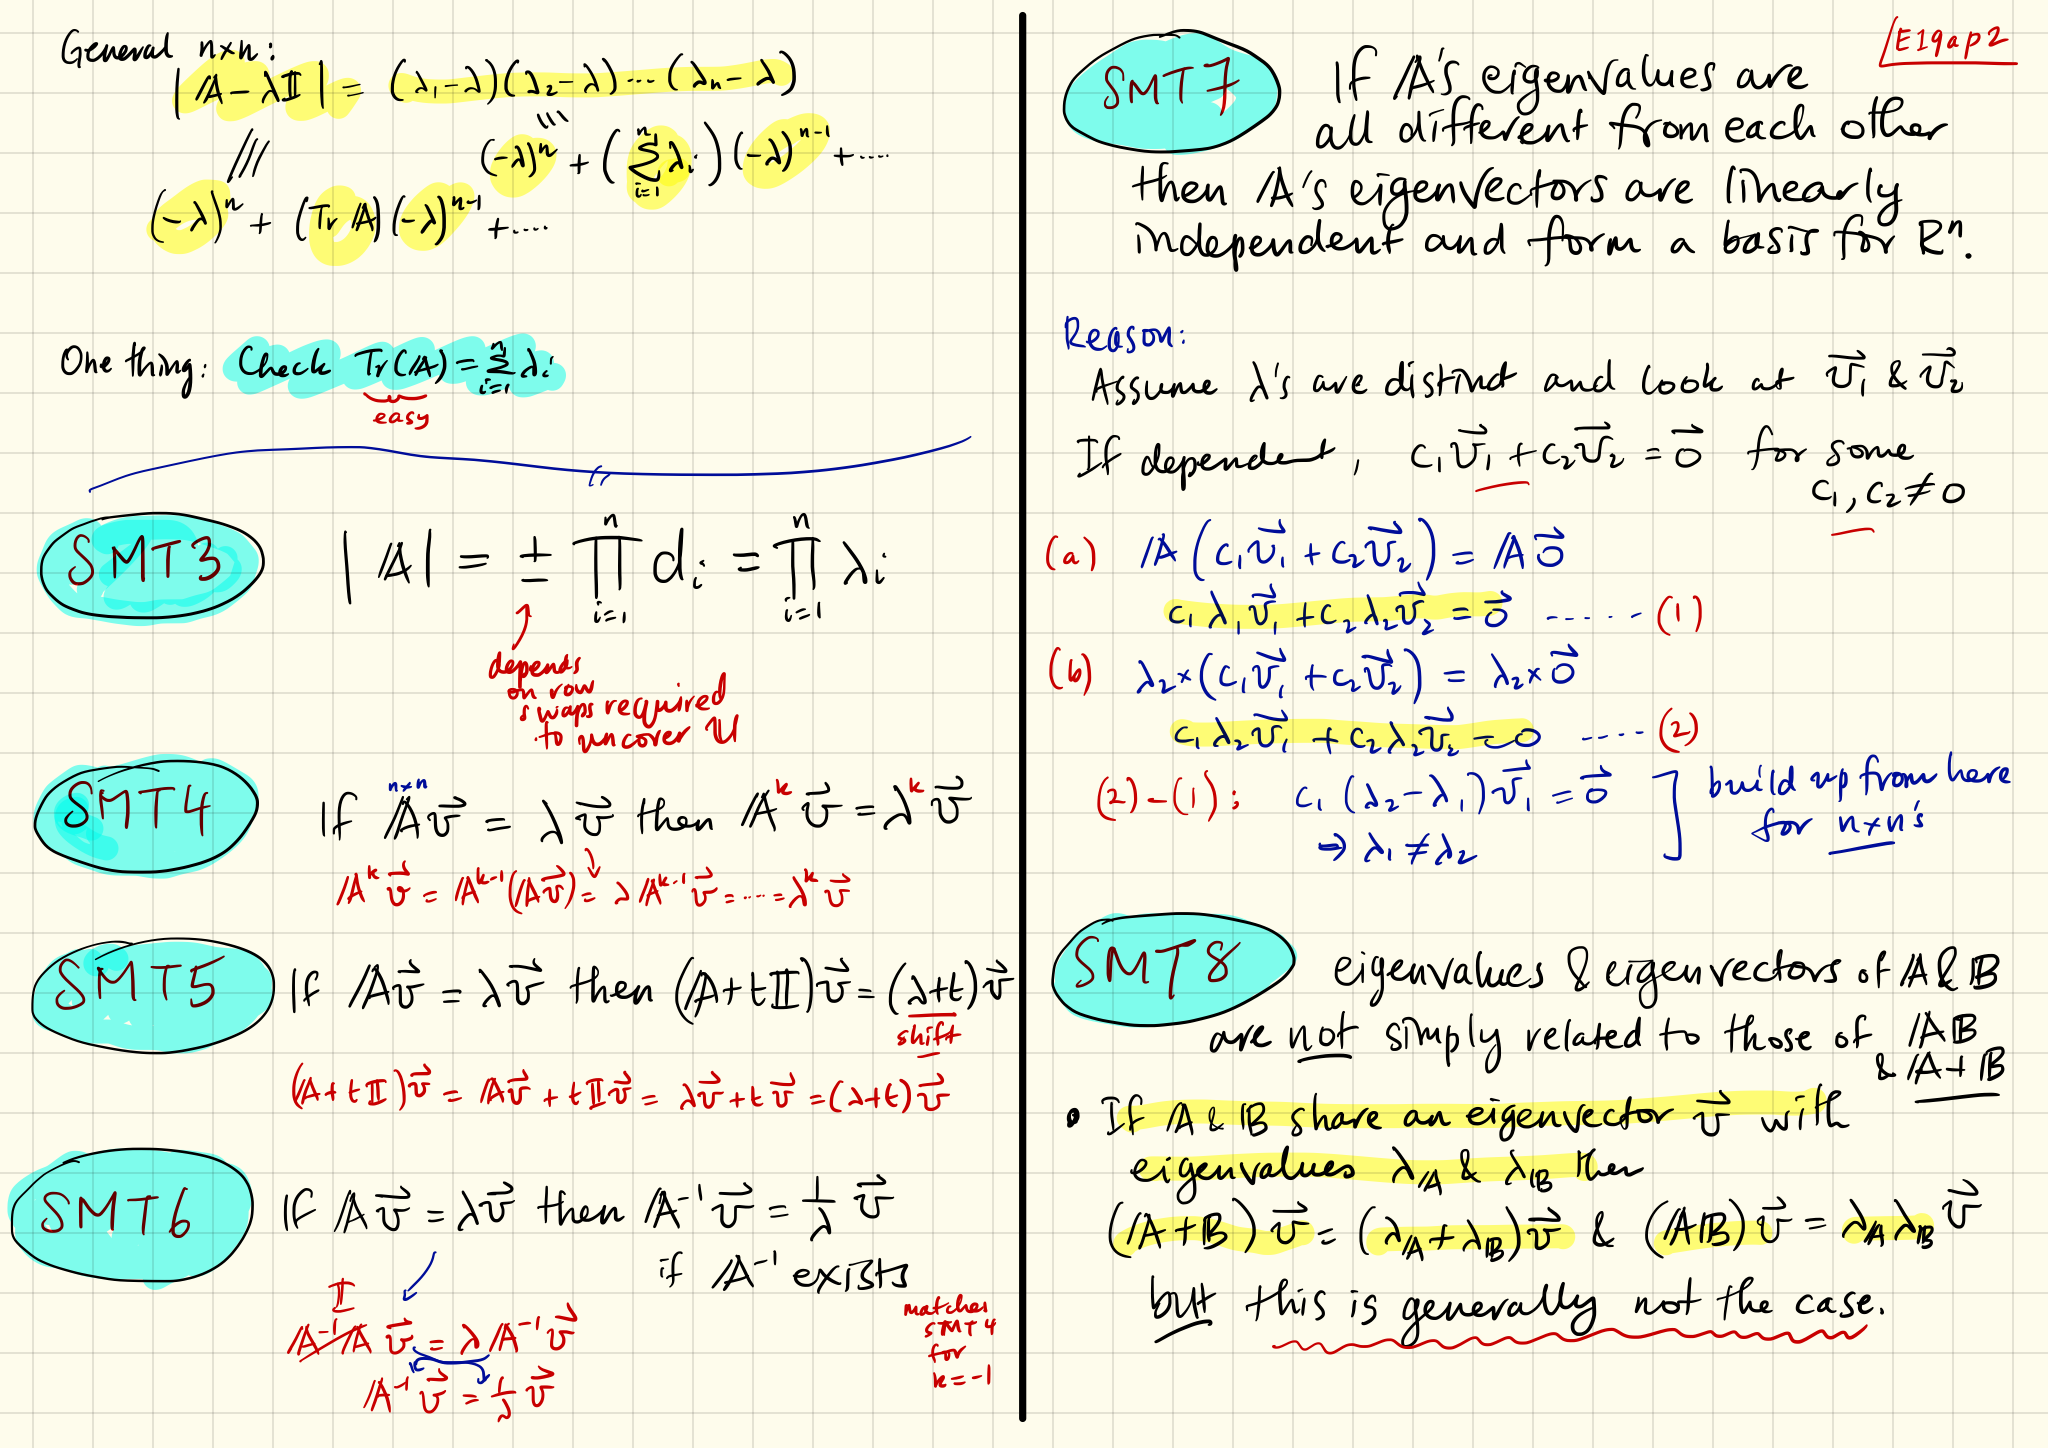 General n×n:
|𝔸 - λ𝕀| = (λ₁-λ)(λ₂-λ)...(λₙ-λ)
(-λ)ⁿ + (∑ᵢ₌₁ⁿ λᵢ)(-λ)ⁿ⁻¹ + ....
(-λ)ⁿ + (Tr 𝔸)(-λ)ⁿ⁻¹ + ....
One thing: Check Tr(𝔸) = ∑ᵢ₌₁ⁿ λᵢ
easy
SMT3
|𝔸| = ± ∏ᵢ₌₁ⁿ dᵢ = ∏ᵢ₌₁ⁿ λᵢ
depends
on row
swaps required
to uncover U
SMT4
n×n
If 𝔸v⃗ = λv⃗ then 𝔸ᵏv⃗ = λᵏv⃗
𝔸ᵏv⃗ = 𝔸ᵏ⁻¹(𝔸v⃗) = λ𝔸ᵏ⁻¹v⃗ = .... = λᵏv⃗
SMT5
If 𝔸v⃗ = λv⃗ then (𝔸+t𝕀)v⃗ = (λ+t)v⃗
shift
(𝔸+t𝕀)v⃗ = 𝔸v⃗ + t𝕀v⃗ = λv⃗ + tv⃗ = (λ+t)v⃗
SMT6
If 𝔸v⃗ = λv⃗ then 𝔸⁻¹v⃗ = 1/λ v⃗
if 𝔸⁻¹ exists
matches
SMT4
for
k=-1
𝕀
𝔸⁻¹𝔸v⃗ = λ𝔸⁻¹v⃗
𝔸⁻¹v⃗ = 1/λ v⃗
E19ap2
SMT7
If 𝔸's eigenvalues are
all different from each other
then 𝔸's eigenvectors are linearly
independent and form a basis for Rⁿ.
Reason:
Assume λ's are distinct and look at v⃗₁ & v⃗₂
If dependent, c₁v⃗₁ + c₂v⃗₂ = 0⃗ for some
c₁, c₂ ≠ 0
(a) 𝔸(c₁v⃗₁ + c₂v⃗₂) = 𝔸0⃗
c₁λ₁v⃗₁ + c₂λ₂v⃗₂ = 0⃗ ...... (1)
(b) λ₂×(c₁v⃗₁ + c₂v⃗₂) = λ₂×0⃗
c₁λ₂v⃗₁ + c₂λ₂v⃗₂ = 0 .... (2)
(2)-(1): c₁(λ₂-λ₁)v⃗₁ = 0⃗
⇒ λ₁ ≠ λ₂
build up from here
for n×n's
SMT8
eigenvalues & eigenvectors of 𝔸 & 𝔹
are not simply related to those of 𝔸𝔹
& 𝔸+𝔹
• If 𝔸 & 𝔹 share an eigenvector v⃗ with
eigenvalues λ_𝔸 & λ_𝔹 then
(𝔸+𝔹)v⃗ = (λ_𝔸+λ_𝔹)v⃗ & (𝔸𝔹)v⃗ = λ_𝔸λ_𝔹v⃗
but this is generally not the case.